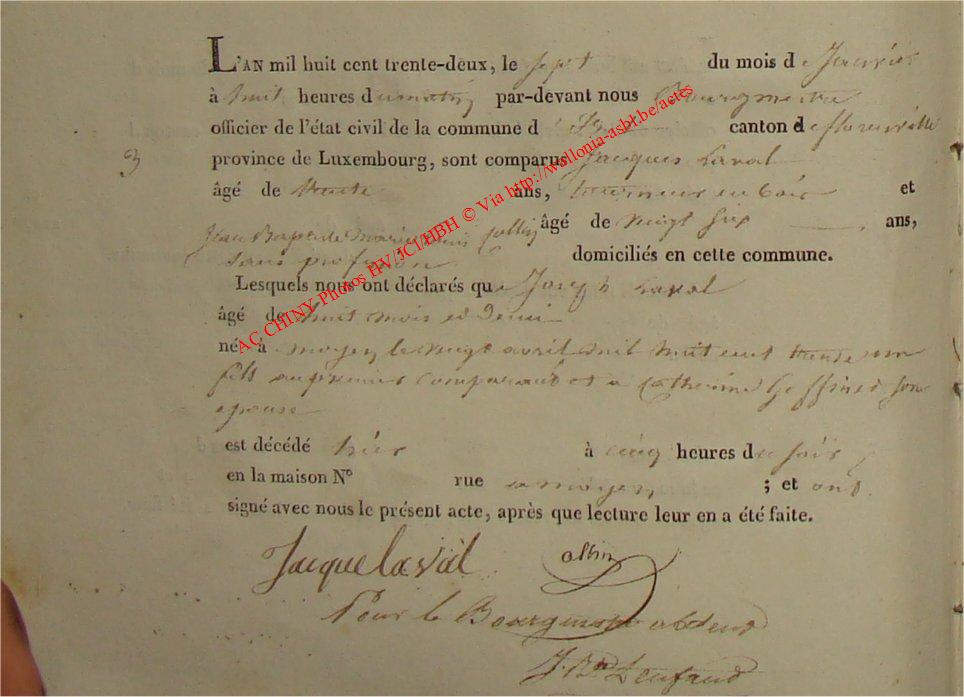 L'AN mil huit cent trente-deux, le sept du mois de Janvier
à huit heures du matin par-devant nous Bourgmestre
officier de l'état civil de la commune d canton de florenville
3
province de Luxembourg, sont comparus Jacques Laval
âgé de trente ans, tourneur en bois et
Jean Baptiste Marie âgé de vingt six ans,
sans profession domiciliés en cette commune.
Lesquels nous ont déclarés que Joseph Laval
âgé de huit mois et demi
né à moyen le vingt avril mil huit cent trente un
fils au premier comparant et a Catherine Goffinet son
epouse
est décédé hier à cinq heures du soir
en la maison N° rue a moyen ; et ont
signé avec nous le présent acte, après que lecture leur en a été faite.
Jacque laval albin
Pour le Bourgmestre absent
J. Bte
AC CHINY Photos HV/JCI/HBH © Via http://wallonia-asbl.be/actes